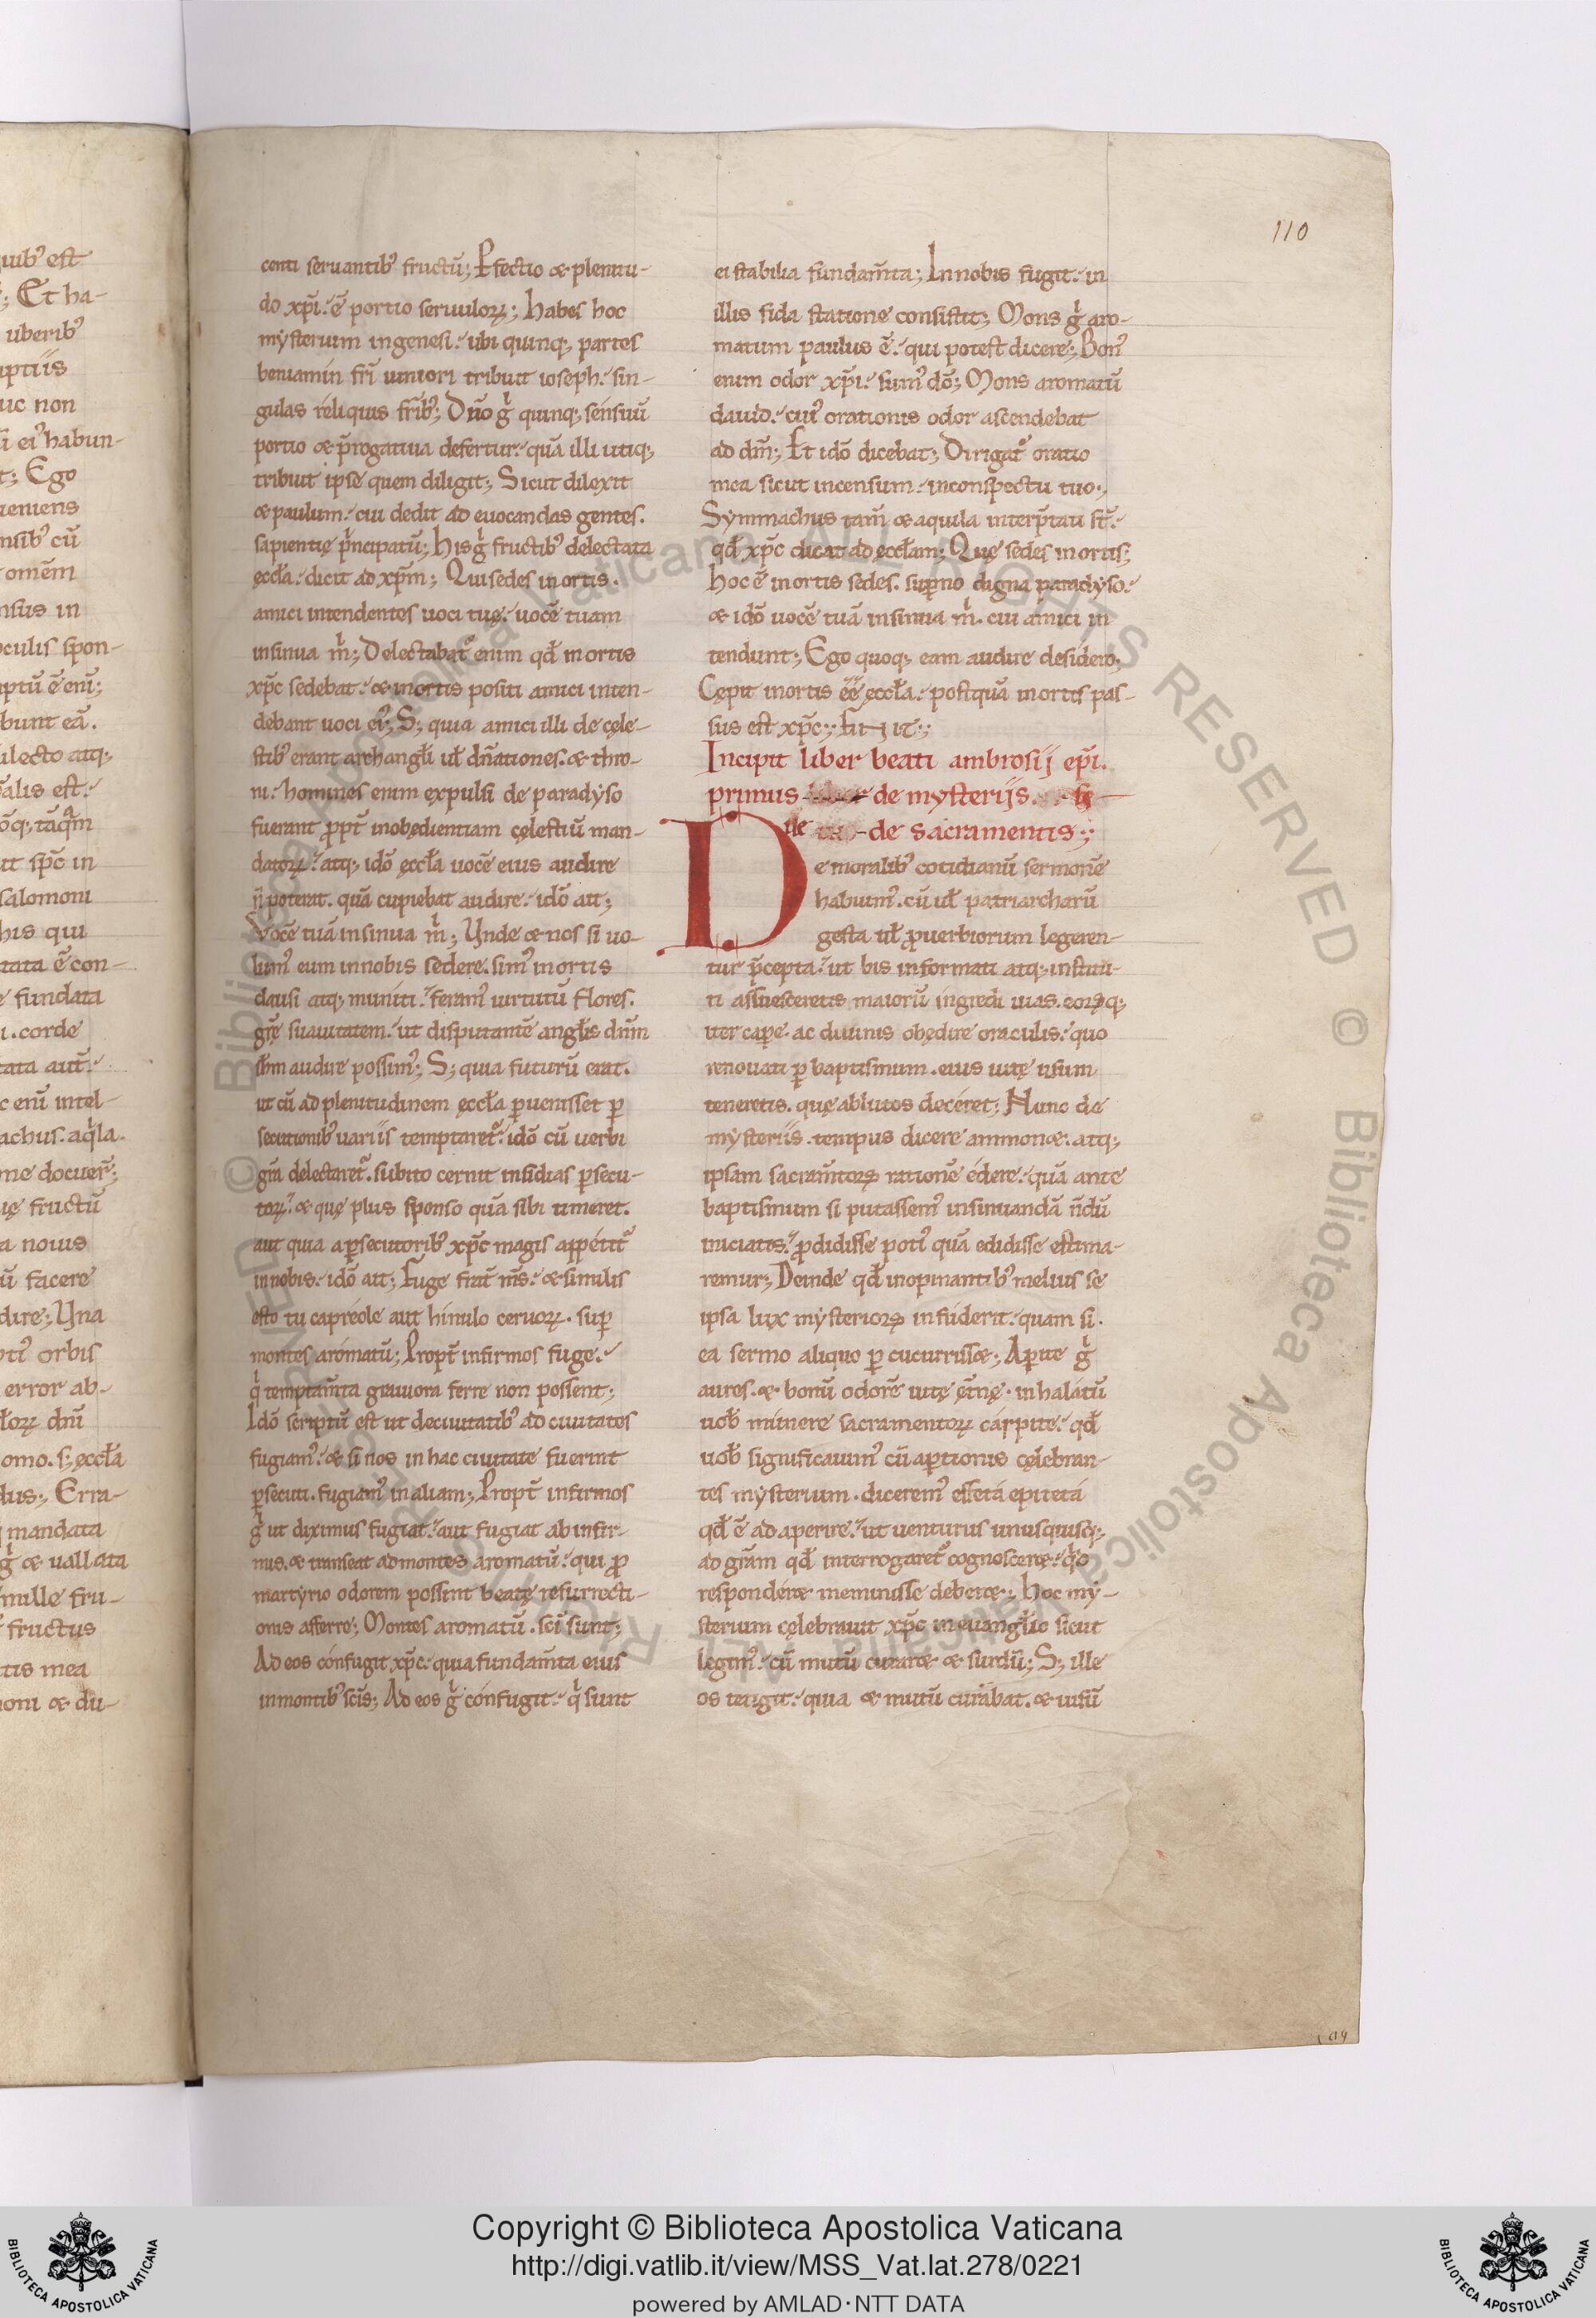 110
centi seruantib᾽ fructū; Perfectio & plenitu-
do xp̄i. ē portio seruulorꝝ; habes hoc
mysterium ingenesi. ubi quinq; partes
beniamin fr̄i iuniori tribuit ioseph. sin-
gulas reliquis fr̄ib᾽; Dn̄o g̊ quinq; sensuū
portio & p̄rogatiua defertur. quā illi utiq;
tribuit ipse quem diligit; Sicut dilexit
& paulum. cui dedit ad euocandas gentes.
sapientię p̄ncipatū; His g̊ fructib᾽ delectata
ęccl̄a. dicit ad xp̄m; Qui sedes in ortis.
amici intendentes uoci tuę. uocē tuam
insinua m̊; Delectabat᾽ enim qd̄ in ortis
xp̄c sedebat. & in ortis positi amici inten-
debant uoci ei᾽; S; quia amici illi de cęle-
stib᾽ erant archangl̄i ul̄ dn̄ationes. & thro-
ni. homines enim expulsi de paradyso
fuerant ꝓpt̄ inobędientiam cęlestiū man-
datorꝝ. atq; idō ęccl̄a uocē eius audire
n̄ poterat. quā cupiebat audire. idō ait;
Vocē tuā insinua m̊; Unde & nos si uo-
lum᾽ eum in nobis sedere. sim᾽ in ortis
clausi atq; muniti. feram᾽ uirtutū flores.
gr̄ę suauitatem. ut disputantē angl̄is dnm̄
audire possim᾽; S; quia futurū erat.
ut cū ad plenitudinem ęccl̄a ꝑuenisset ꝑ
secutionib᾽ uariis temptaret᾽. idō cū uerbi
gr̄a delectaret᾽. subito cernit insidias ꝑsecu-
torꝝ. & quę plus sponso quā sibi timeret.
aut quia a ꝑsecutorib᾽ xp̄c magis appetit᾽
in nobis. idō ait; Fuge frat̄ m̄s. & similis
esto tu capreole aut hinulo ceruorꝝ. suꝑ
montes aromatū; Propt̄ infirmos fuge.
q̊ temptam̄ta grauiora ferre non possent;
Idō scriptū est ut de ciuitatib᾽ ad ciuitates
fugiam᾽. & si nos in hac ciuitate fuerint
ꝑsecuti. fugiam᾽ in aliam; Propt̄ infirmos
g̊ ut diximus fugiat. aut fugiat ab infir-
mis. & transeat ad montes aromatū. qui ꝓ
martyrio odorem possint beatę resurrecti-
onis afferre; Montes aromatū. sc̄i sunt;
Ad eos confugit xp̄c. quia fundam̄ta eius
in montib᾽ sc̄is; Ad eos g̊ confugit. q̊ sunt
ei stabilia fundam̄ta; In nobis fugit. in
illis fida statione consistit; Mons g̊ aro-
matum paulus ē. qui potest dicere; Bon᾽
enim odor xp̄i. sum᾽ dō; Mons aromatū
dauid. cui᾽ orationis odor ascendebat
ad dm̄; Et idō dicebat; Dirigat᾽ oratio
mea sicut incensum. in conspectu tuo;
Symmachus tam̄ & aquila interp̄tati st̄.
qd̄ xp̄c dicat ad ęccl̄am; Quę sedes in ortis;
hoc ē in ortis sedes. suꝑno digna paradyso.
& idō uocē tuā insinua m̊. cui amici in
tendunt; Ego quoq; eam audire desidero;
Cępit in ortis ēē ęccl̄a. postquā in ortis pas-
sus est xp̄c; Finit;
Incipit liber beati ambrosij ep̄i.
primus de mysterijs. si
ue de sacramentis;
De moralib᾽ cotidianū sermonē
habuim᾽. cū ul̄ patriarcharū
gesta ul̄ ꝓuerbiorum legeren-
tur p̄cepta. ut his informati atq; institu-
ti assuesceretis maiorū ingredi uias. eorꝝq;
iter capere. ac diuinis obędire oraculis. quo
renouati ꝑ baptismum. eius uitę usum
teneretis. quę ablutos deceret; Nunc de
mysteriis. tempus dicere ammon&. atq;
ipsam sacram̄torꝝ rationē edere. quā ante
baptismum si putassem᾽ insinuandā n̄dū
iniciatis. ꝓdidisse poti᾽ quā edidisse estima-
remur; Deinde qd̄ inopinantib᾽ melius se
ipsa lux mysteriorꝝ infuderit. quam si
ea sermo aliquo ꝑcucurriss&; Aperite g̊
aures. & bonū odorē uitę ęt̄nę. inhalatū
uob̄ munere sacramentorꝝ carpite. qd̄
uob̄ significauim᾽ cū aꝑtionis cęlebran-
tes mysterium. dicerem᾽ effeta epiteta
qd̄ ē adaperire. ut uenturus unusquisq;
ad gr̄am qd̄ interrogaret᾽ cognoscer&. q̊
responder& meminisse deber&; hoc my-
sterium cęlebrauit xp̄c in euangl̄io sicut
legim᾽. cū mutū curar& & surdū; S; ille
os tetigit. quia & mutū curabat. & uisū
109
Copyright © Biblioteca Apostolica Vaticana
http://digi.vatlib.it/view/MSS_Vat.lat.278/0221
powered by AMLAD · NTT DATA